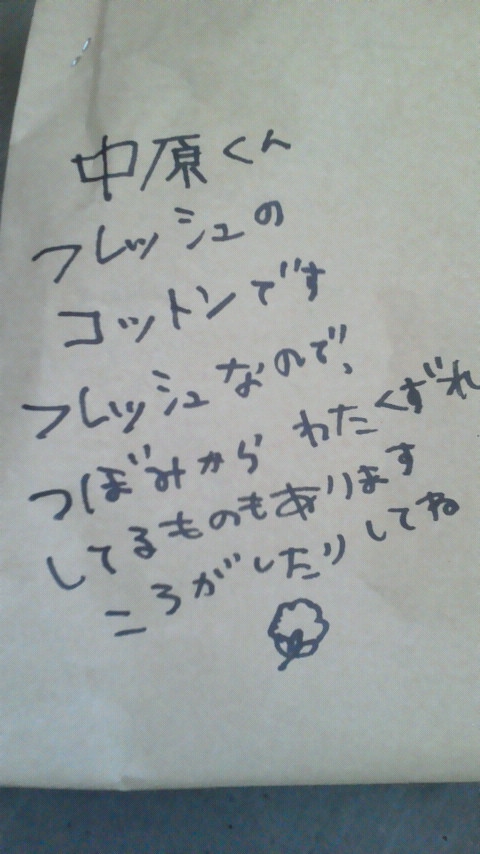 中原くん
フレッシュの
コットンです
フレッシュなので、
つぼみから わたくずれ
してるものもあります
ころがしたりしてね